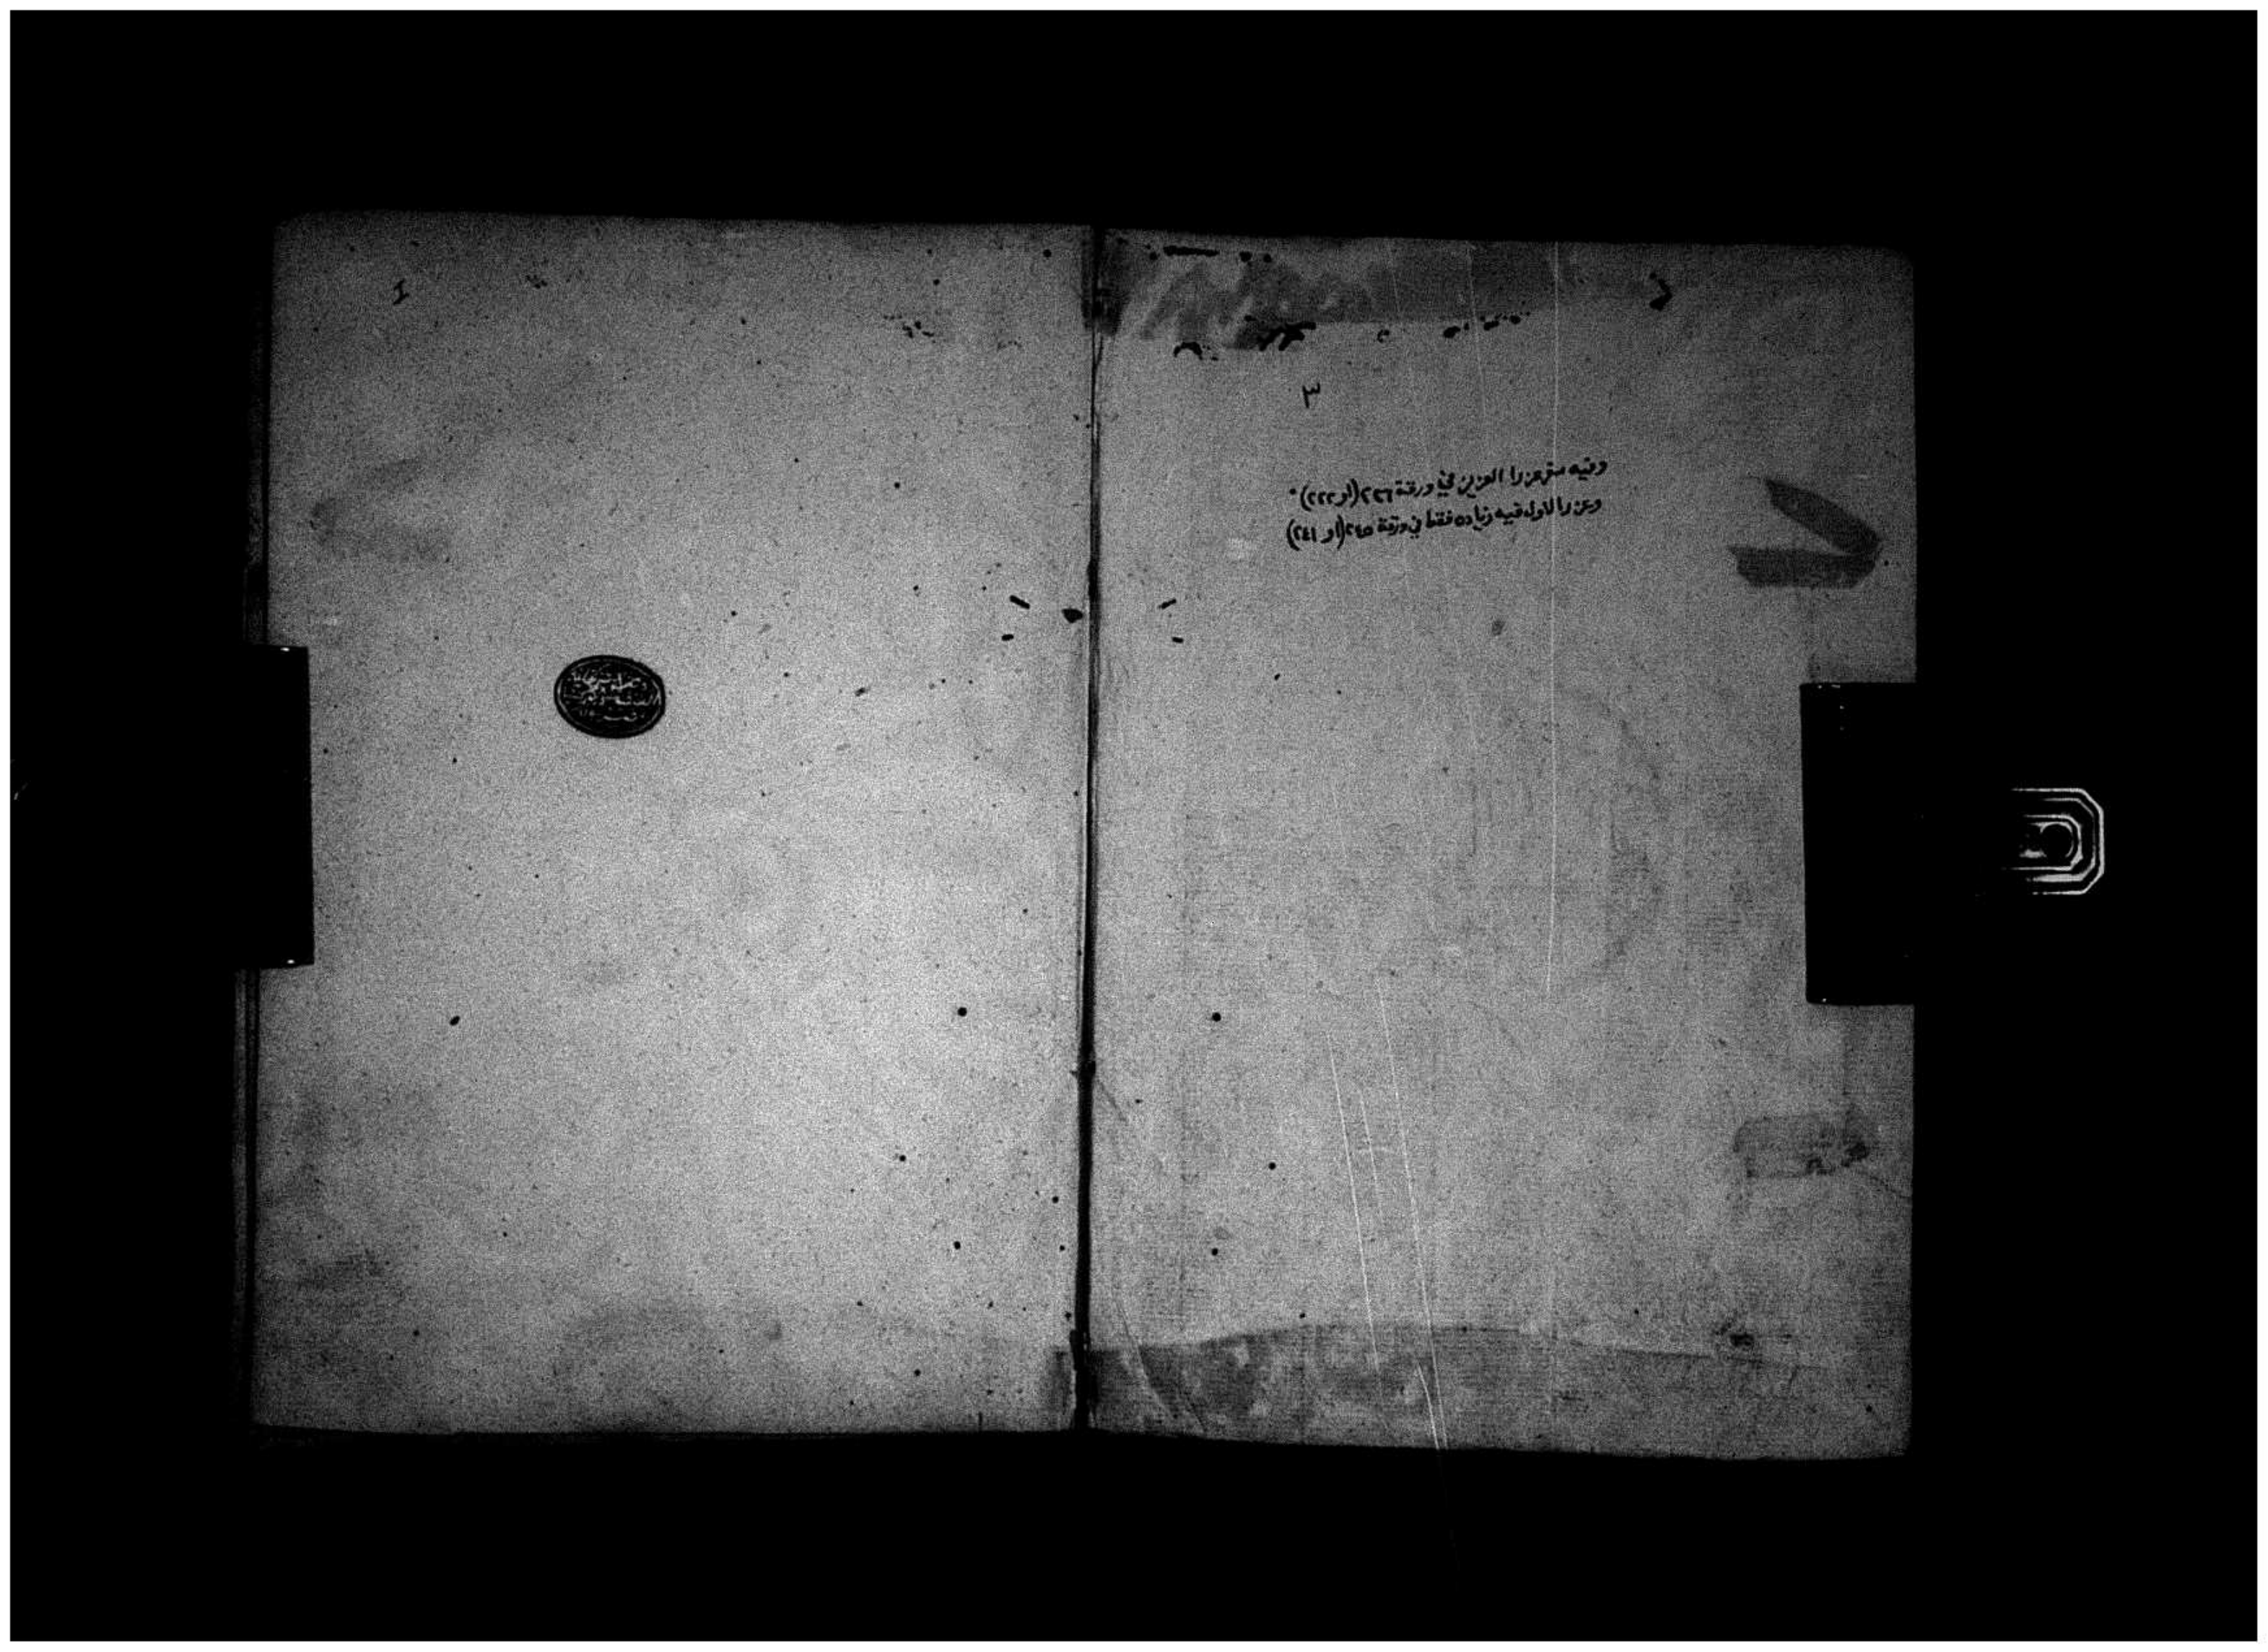 ٣
وفيه سفر عزرا العزيز في ورقة ٢٢٦ (او ٢٢٢)
وعزرا الاول فيه زياده فقط في ورقة ٢٤٥ (او ٢٤١)